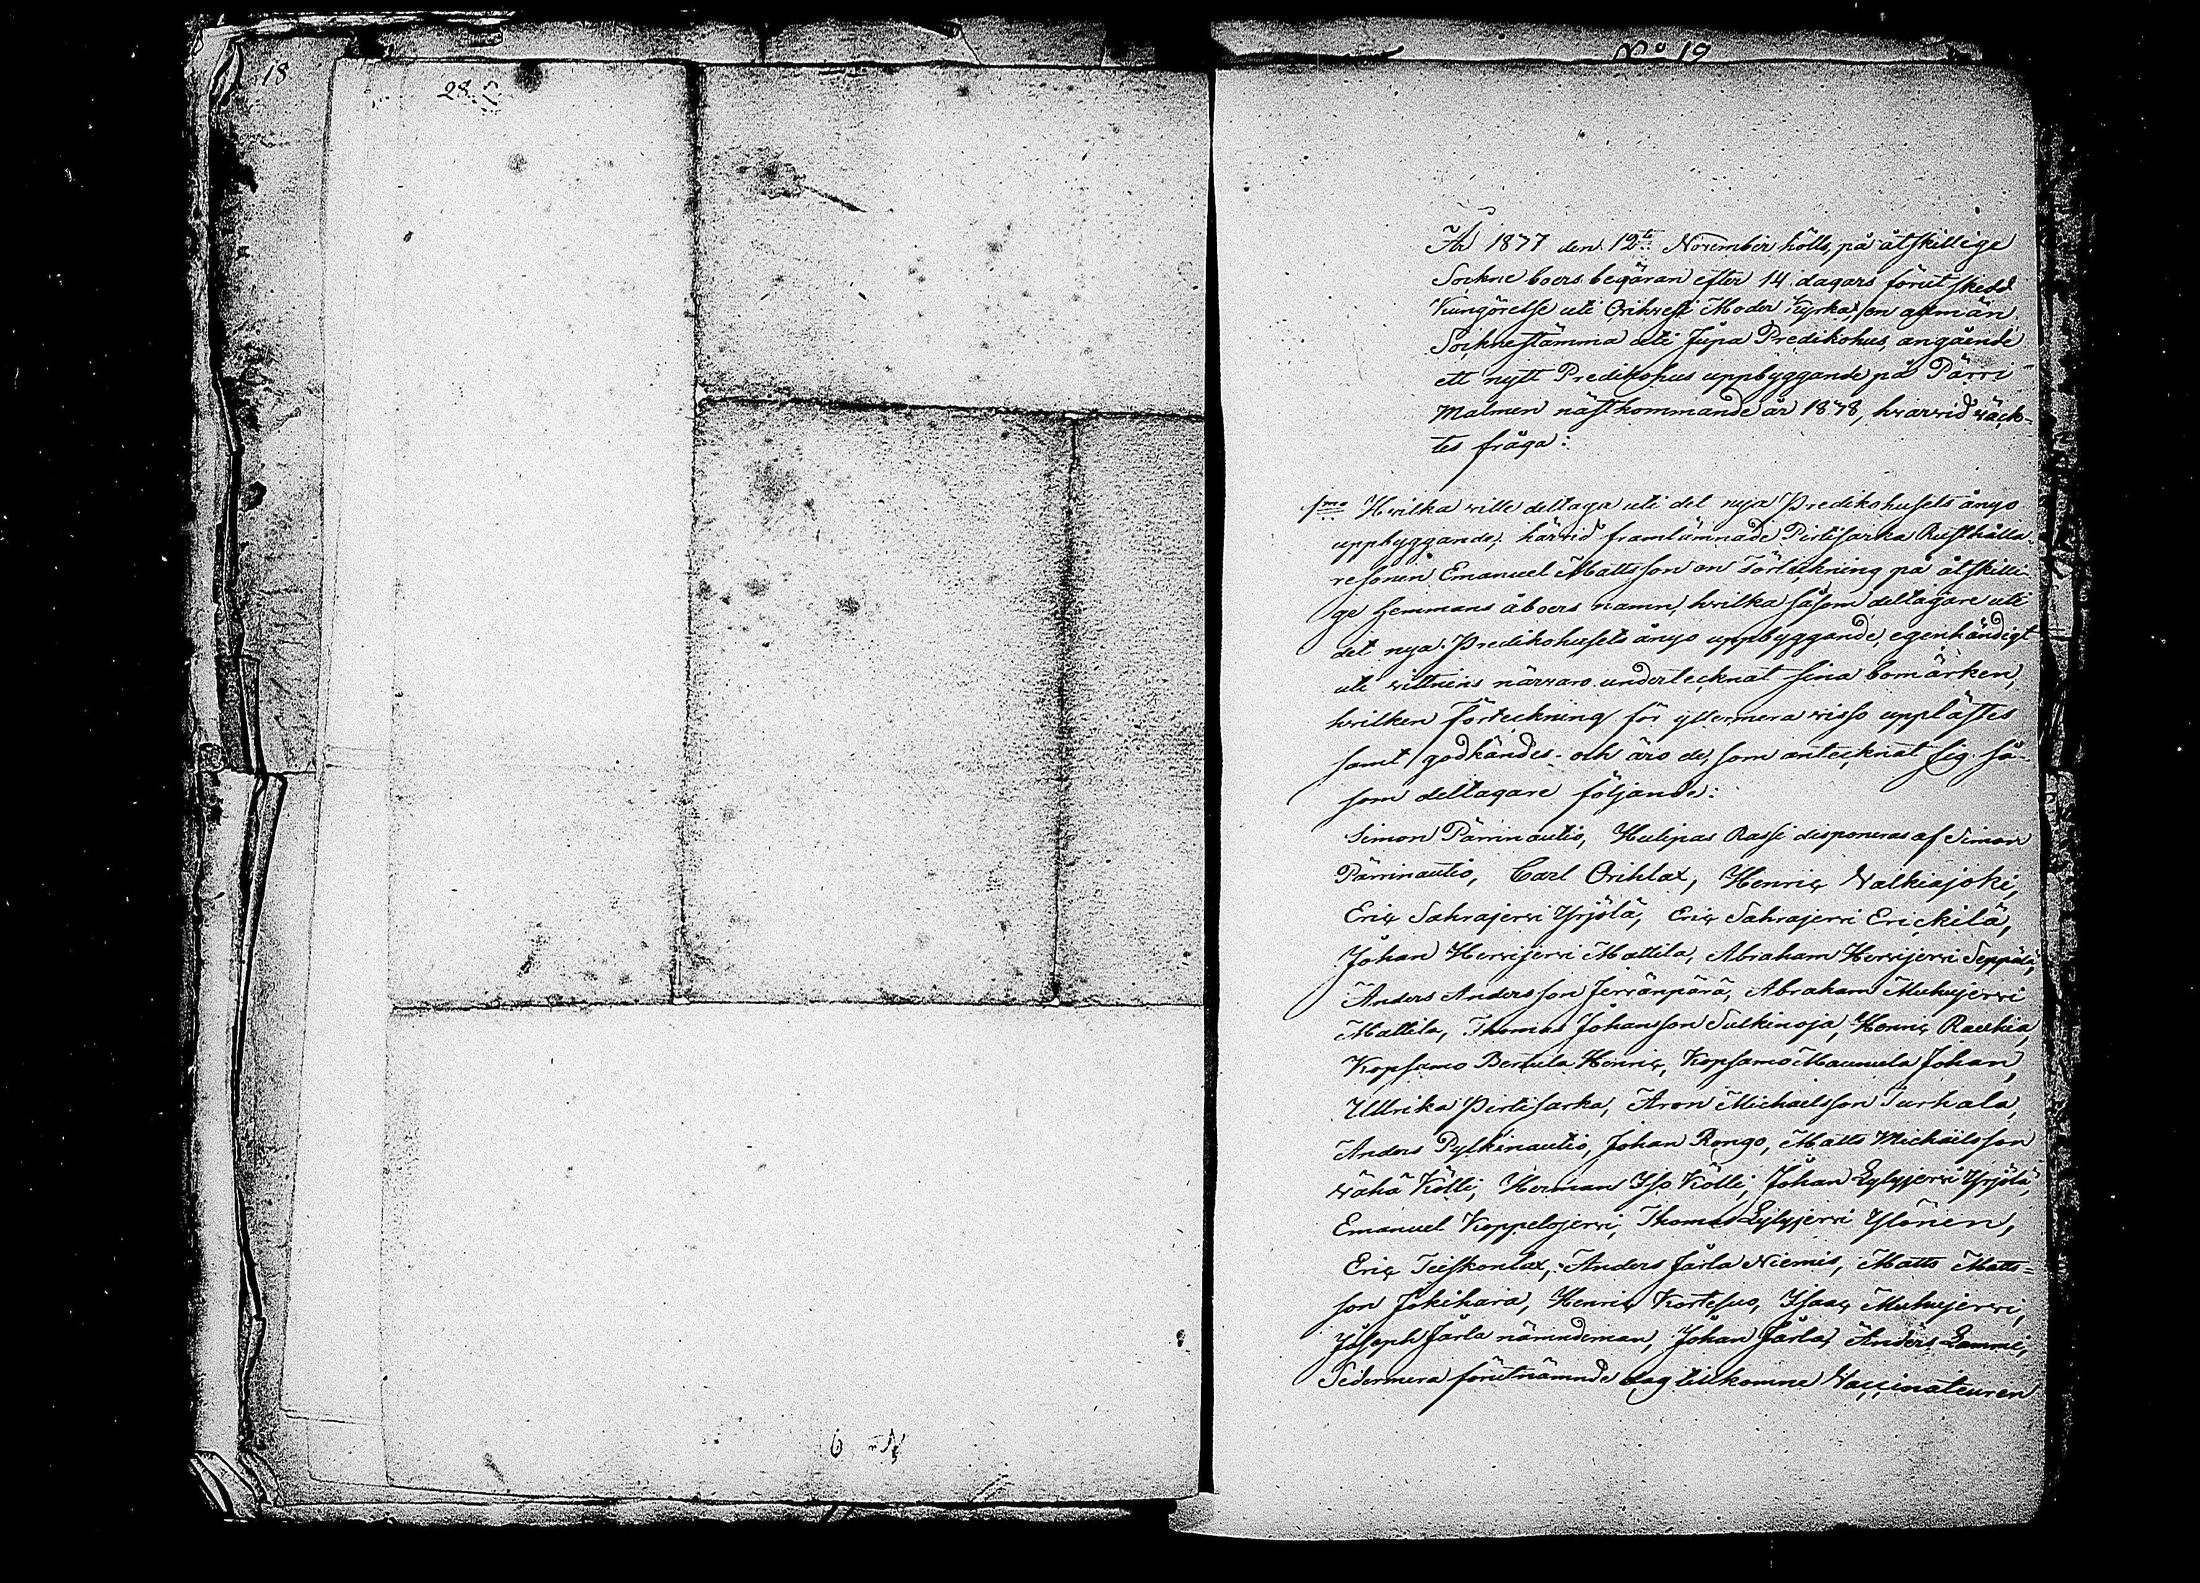 18
28
No 19
År 1877 den 12te November hölls, på åtskillige
Sockne boers begäran efter 14 dagars förut skedd
Kungörelse uti Orihvesi Moder Kyrka, en allmän
Socknestämma uti Jupa Predikohus, angående
ett nytt Predikohus uppbyggande på Pärri
Malmen nästkommande år 1878, hvarvid väck-
tes fråga:
1mo Hvilka ville deltaga uti det nya Predikohusets ånyo
uppbyggande; härvid framlämnade Pirtisarka Rusthålla-
resonen Emanuel Mattsson en Förteckning på åtskilli-
ge hemmans åboers namn, hvilka såsom deltagare uti
det nya Predikohusets ånyo uppbyggande, egenhändigt
uti vittnens närvaro undertecknat sina bomärken,
hvilken Förteckning för yttermera visso upplästes
samt godkändes och äro de, som antecknat sig så-
som deltagare följande:
Simon Pärrinautio, Hulipas Rassi disponeras af Simon
Pärrinautio, Carl Orihlax, Henric Valkiajoki,
Eric Sahrajervi Yrjölä, Eric Sahrajervi Erickilä,
Johan Hervijervi Mattila, Abraham Hervijervi Seppälä,
Anders Andersson Jervänpärä, Abraham Muhujervi
Mattila, Thomas Johansson Sulkinoja, Henric Raukia,
Kopsamo Bertula Henric, Kopsamo Maunula Johan,
Ullrika Pirtisarka, Aron Michaelsson Turhala,
Anders Pylkinautio, Johan Rongo, Matts Michaelsson
vähä Kölli, Herman Yso Kölli, Johan Lylyjervi Yrjölä,
Emanuel Koppelojervi, Thomas Lylyjervi Ylönen,
Eric Teiskonlax, Anders Järla Niemis, Matts Matts-
son Jokihara, Henric Kortesuo, Ysaac Muhujervi,
Joseph Järla nämndeman, Johan Järla, Anders Lammi,
Sedermera förutnämnde dag tillkomne Vaccinateuren